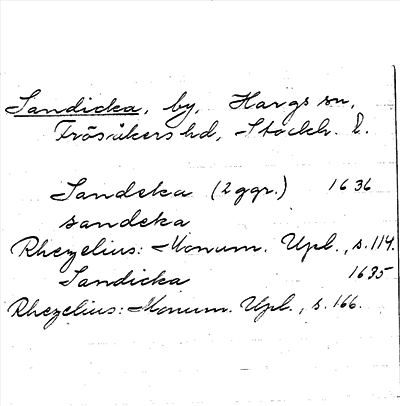 Sandicka, by, Hargs sn,
Frösåkers hd, Stockh. l.
Sandeka (2 ggr.) 1636
sandeka
Rhezelius: Monum. Upl., s. 114.
Sandicka 1635
Rhezelius: Monum. Upl., s. 166.